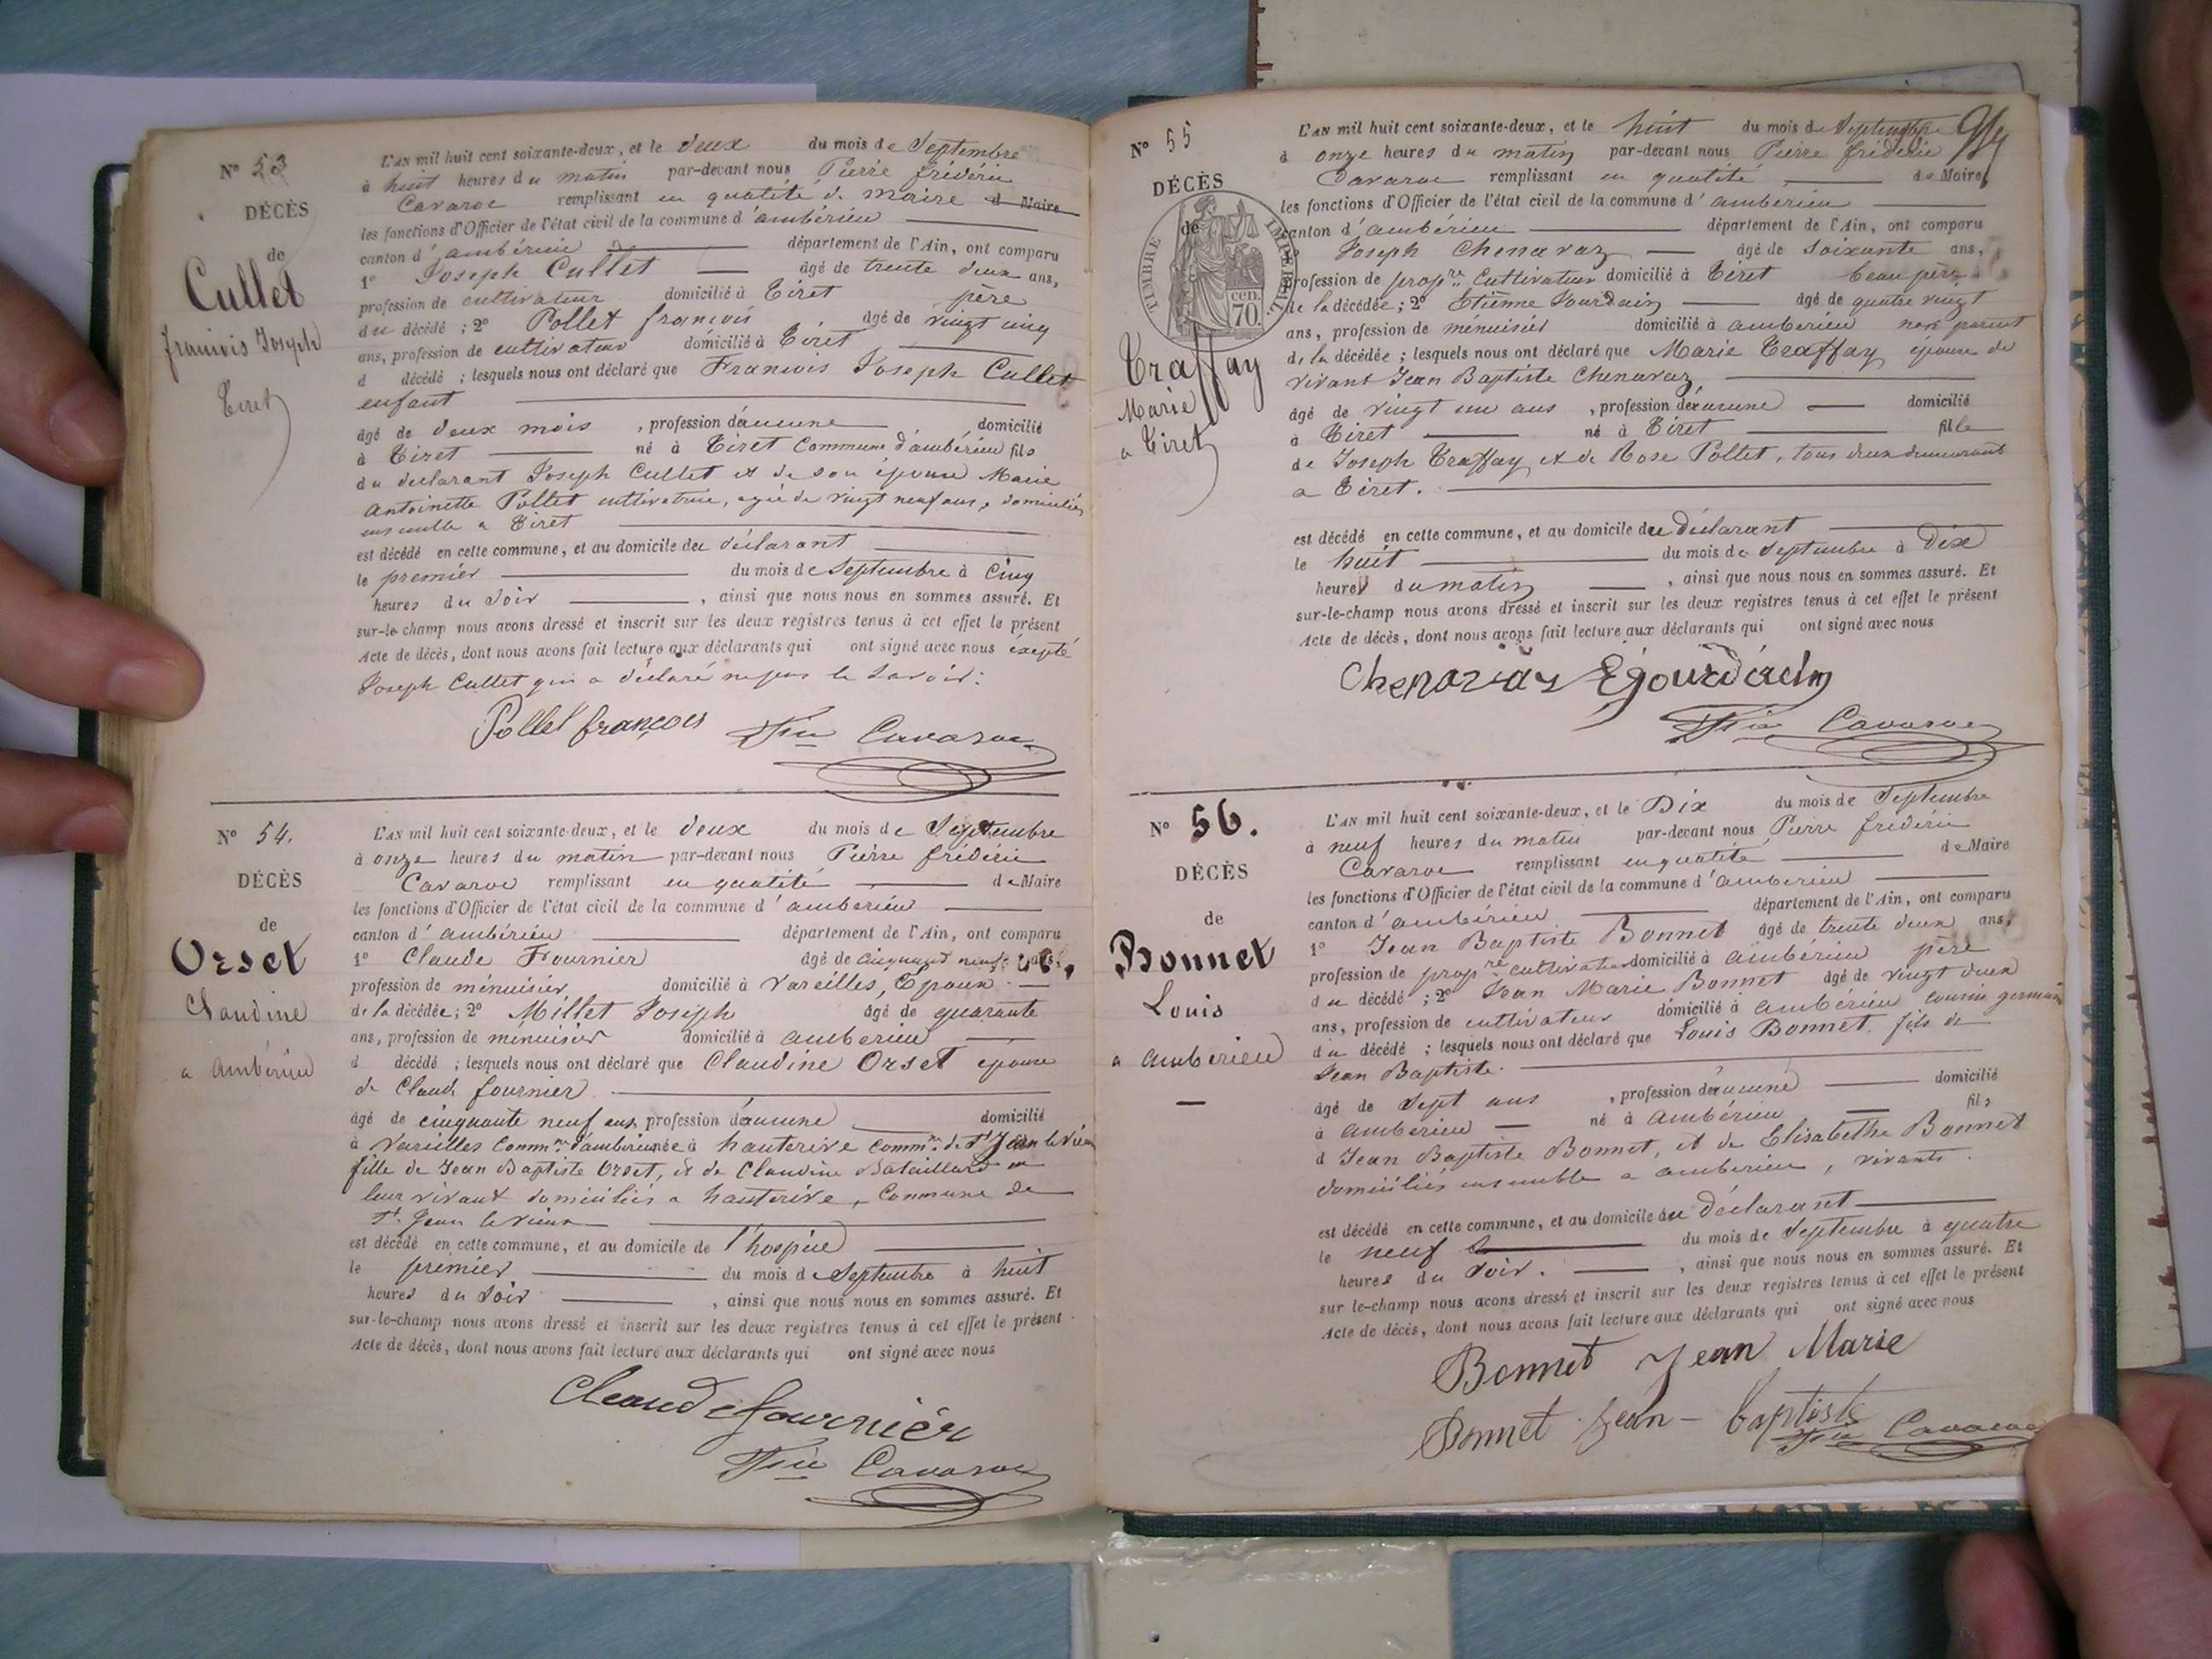 N° 53
DÉCÈS
de
Cullet
francois Joseph
Tiret
L'AN mil huit cent soixante-deux, et le deux du mois de Septembre
à huit heures du matin par-devant nous Pierre frédéric
Cavaroc remplissant en qualité de maire d Maire
les fonctions d'Officier de l'état civil de la commune d'ambérieu
canton d'ambérieu département de l'Ain, ont comparu
1° Joseph Cullet âgé de trente deux ans,
profession de cultivateur domicilié à Tiret père
du décédé ; 2° Pollet françois âgé de vingt cinq
ans, profession de cultivateur domicilié à Tiret
d décédé ; lesquels nous ont déclaré que Francois Joseph Cullet
enfant
âgé de deux mois , profession d'aucune domicilié
à Tiret né à Tiret Commune d'ambérieu fils
du declarant Joseph Cullet et de son épouse Marie
Antoinette Pollet cultivatrice, agée de vingt neuf ans, domiciliés
ensemble a Tiret
est décédé en cette commune, et au domicile du déclarant
le premier du mois de Septembre à cinq
heures du soir , ainsi que nous nous en sommes assuré. Et
sur-le-champ nous avons dressé et inscrit sur les deux registres tenus à cet effet le présent
Acte de décès, dont nous avons fait lecture aux déclarants qui ont signé avec nous éxépté
Joseph Cullet qui a déclaré ne pas le Savoir.
Pollet françois Cavaroc
N° 54.
DÉCÈS
de
Orset
Claudine
a ambérieu
L'AN mil huit cent soixante-deux, et le deux du mois de Septembre
à onze heures du matin par-devant nous Pierre frédéric
Cavaroc remplissant en qualité de Maire
les fonctions d'Officier de l'état civil de la commune d'ambérieu
canton d'ambérieu département de l'Ain, ont comparu
1° Claude Fournier âgé de cinquante neuf ans,
profession de ménuisier domicilié à Vareilles, Epoux
de la décédée; 2° Millet Joseph âgé de quarante
ans, profession de ménuisier domicilié à ambérieu
d décédé ; lesquels nous ont déclaré que Claudine Orset épouse
de Claude fournier
âgé de cinquante neuf ans, profession d'aucune domicilié
à Vareilles Comm.ne d'ambérieu née à hauterive comm.ne de St Jean le vieux
fille de Jean Baptiste Orset, et de Claudine Bataillard en
leur vivant domiciliés a hauterive, Commune de
St. Jean le vieux
est décédé en cette commune, et au domicile de l'hospice
le premier du mois de Septembre à huit
heures du soir , ainsi que nous nous en sommes assuré. Et
sur-le-champ nous avons dressé et inscrit sur les deux registres tenus à cet effet le présent
Acte de décès, dont nous avons fait lecture aux déclarants qui ont signé avec nous
Claude fournier
Cavaroc
N° 55
DÉCÈS
de
TIMBRE IMPÉRIAL
70 cen.
Traffay
Marie
a Tiret
L'AN mil huit cent soixante-deux, et le huit du mois de Septembre
à onze heures du matin par-devant nous Pierre fréderic
Cavaroc remplissant en qualité de Maire,
les fonctions d'Officier de l'état civil de la commune d'ambérieu
canton d'ambérieu département de l'Ain, ont comparu
Joseph Chenavaz âgé de soixante ans,
profession de prop.re Cultivateur domicilié à Tiret beau père
de la décédée ; 2° Etienne Jourdain âgé de quatre vingt
ans, profession de ménuisier domicilié à ambérieu non parent
de la décédée ; lesquels nous ont déclaré que Marie Traffay épouse de
vivant Jean Baptiste Chenavaz,
âgé de vingt un ans , profession d'aucune domicilié
à Tiret né à Tiret fille
de Joseph Traffay et de Rose Pollet, tous deux demeurant
a Tiret.
est décédé en cette commune, et au domicile du déclarant
le huit du mois de Septembre à dix
heures du matin , ainsi que nous nous en sommes assuré. Et
sur-le-champ nous avons dressé et inscrit sur les deux registres tenus à cet effet le présent
Acte de décès, dont nous avons fait lecture aux déclarants qui ont signé avec nous
Chenavas Ejourdain
Cavaroc
N° 56.
DÉCÈS
de
Bonnet
Louis
a ambérieu
L'AN mil huit cent soixante-deux, et le Dix du mois de Septembre
à neuf heures du matin par-devant nous Pierre fréderic
Cavaroc remplissant en qualité de Maire
les fonctions d'Officier de l'état civil de la commune d'ambérieu
canton d'ambérieu département de l'Ain, ont comparu
1° Jean Baptiste Bonnet âgé de trente deux ans,
profession de prop.re cultivateur domicilié à ambérieu père
du décédé ; 2° Jean Marie Bonnet âgé de vingt deux
ans, profession de cultivateur domicilié à ambérieu cousin germain
du décédé ; lesquels nous ont déclaré que Louis Bonnet, fils de
Jean Baptiste.
âgé de sept ans , profession d'aucune domicilié
à ambérieu né à ambérieu fils
d Jean Baptiste Bonnet, et de Elisabethe Bonnet
domiciliés ensemble a ambérieu, vivants.
est décédé en cette commune, et au domicile du déclarant
le neuf du mois de Septembre à quatre
heures du soir. , ainsi que nous nous en sommes assuré. Et
sur le-champ nous avons dressé et inscrit sur les deux registres tenus à cet effet le présent
Acte de décès, dont nous avons fait lecture aux déclarants qui ont signé avec nous
Bonnet Jean Marie
Bonnet Jean-baptiste Cavaroc